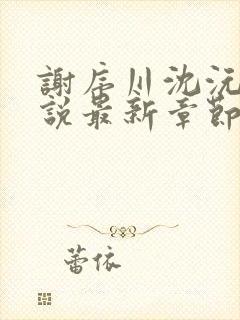 謝辰川沈沅
說最新章節
蕾依